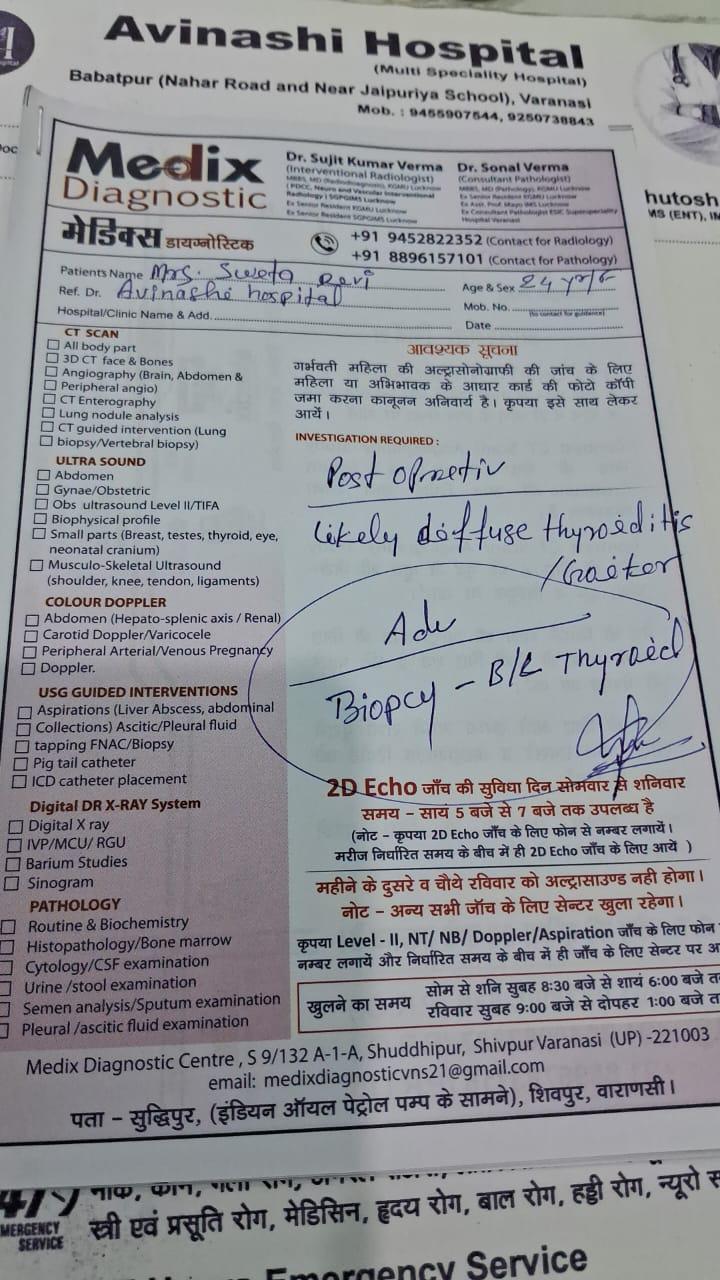 Avinashi Hospital
(Multi Speciality Hospital)
Babatpur (Nahar Road and Near Jaipuriya School), Varanasi
Mob. : 9455907544, 9250738843
hutosh
MS (ENT),
Medix
Diagnostic
मेडिक्स डायग्नोस्टिक
Dr. Sujit Kumar Verma
(Interventional Radiologist)
Dr. Sonal Verma
(Consultant Pathologist)
+91 9452822352 (Contact for Radiology)
+91 8896157101 (Contact for Pathology)
Patients Name Mrs. Sweta Devi
Age & Sex 24 yrs
Ref. Dr. Avinashi hospital
Mob. No.
Hospital/Clinic Name & Add.
Date
CT SCAN
All body part
3D CT face & Bones
Angiography (Brain, Abdomen &
Peripheral angio)
CT Enterography
Lung nodule analysis
CT guided intervention (Lung
biopsy/Vertebral biopsy)
ULTRA SOUND
Abdomen
Gynae/Obstetric
Obs ultrasound Level II/TIFA
Biophysical profile
Small parts (Breast, testes, thyroid, eye,
neonatal cranium)
Musculo-Skeletal Ultrasound
(shoulder, knee, tendon, ligaments)
COLOUR DOPPLER
Abdomen (Hepato-splenic axis / Renal)
Carotid Doppler/Varicocele
Peripheral Arterial/Venous Pregnancy
Doppler.
USG GUIDED INTERVENTIONS
Aspirations (Liver Abscess, abdominal
Collections) Ascitic/Pleural fluid
tapping FNAC/Biopsy
Pig tail catheter
ICD catheter placement
Digital DR X-RAY System
Digital X ray
IVP/MCU/ RGU
Barium Studies
Sinogram
PATHOLOGY
Routine & Biochemistry
Histopathology/Bone marrow
Cytology/CSF examination
Urine /stool examination
Semen analysis/Sputum examination
Pleural /ascitic fluid examination
आवश्यक सूचना
गर्भवती महिला की अल्ट्रासोनोग्राफी की जांच के लिए
महिला या अभिभावक के आधार कार्ड की फोटो कॉपी
जमा करना कानूनन अनिवार्य है। कृपया इसे साथ लेकर
आयें।
INVESTIGATION REQUIRED :
Post
Likely diffuse thyroiditis
/Goiter
Adv
Biopcy - B/L Thyroid
2D Echo जाँच की सुविधा दिन सोमवार से शनिवार
समय – सायं 5 बजे से 7 बजे तक उपलब्ध है
(नोट – कृपया 2D Echo जाँच के लिए फोन से नम्बर लगायें।
मरीज निर्धारित समय के बीच में ही 2D Echo जाँच के लिए आयें )
महीने के दुसरे व चौथे रविवार को अल्ट्रासाउण्ड नही होगा।
नोट – अन्य सभी जाँच के लिए सेन्टर खुला रहेगा।
कृपया Level - II, NT/ NB/ Doppler/Aspiration जाँच के लिए फोन
नम्बर लगायें और निर्धारित समय के बीच में ही जाँच के लिए सेन्टर पर
खुलने का समय
सोम से शनि सुबह 8:30 बजे से शायं 6:00 बजे
रविवार सुबह 9:00 बजे से दोपहर 1:00 बजे
Medix Diagnostic Centre , S 9/132 A-1-A, Shuddhipur, Shivpur Varanasi (UP) -221003
email: medixdiagnosticvns21@gmail.com
पता – सुद्धिपुर, (इंडियन ऑयल पेट्रोल पम्प के सामने), शिवपुर, वाराणसी।
नाक, कान, गला रोग,
SERVICE
स्त्री एवं प्रसूति रोग, मेडिसिन, हृदय रोग, बाल रोग, हड्डी रोग, न्यूरो
Emergency Service